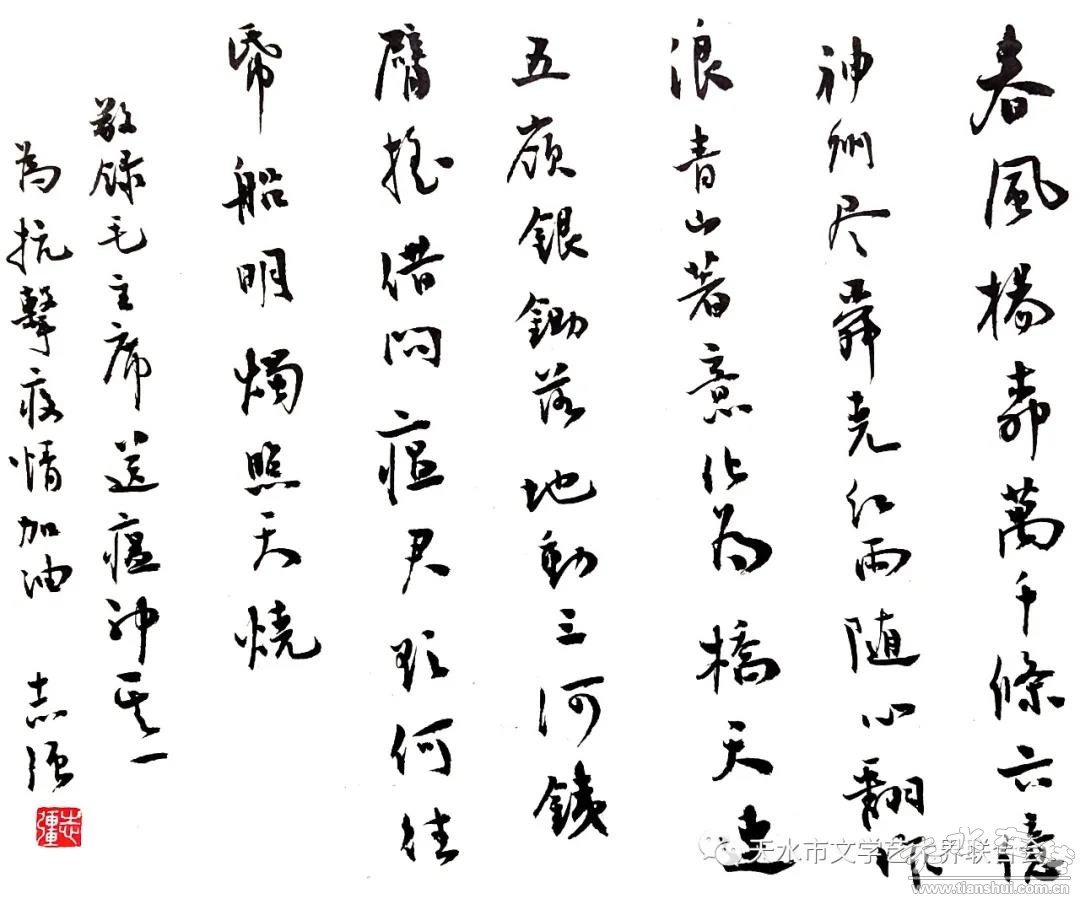 春風楊柳萬千條六億
神州尽舜尧红雨随心翻作
浪青山著意化為橋天連
五嶺銀鋤落地動三河鐵
臂摇借問瘟君欲何往
帋船明燭照天燒
敬録毛主席送瘟神其一
為抗擊疫情加油 志强
天水市文学艺术界联合会
www.tianshui.com.cn